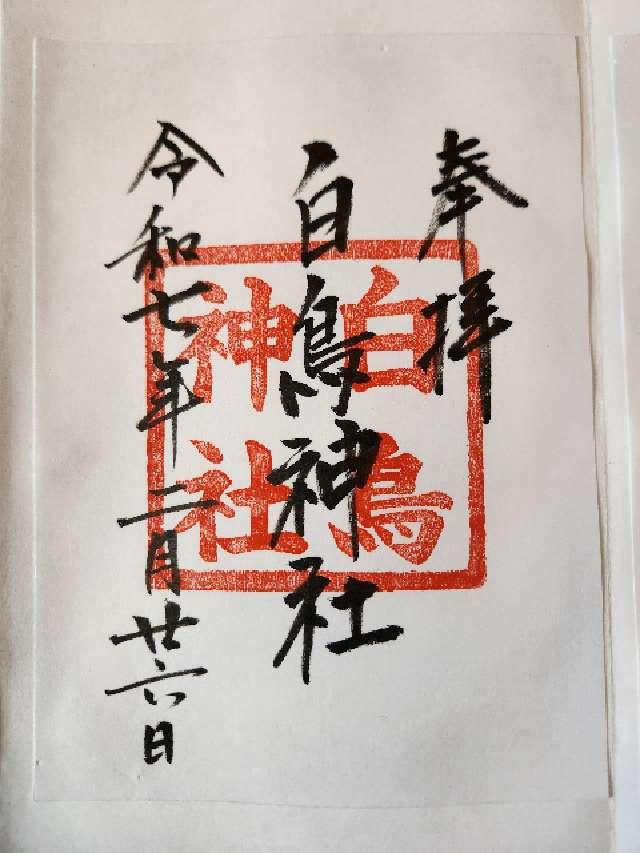 奉拝
白鳥神社
白鳥
神社
令和七年二月廿六日